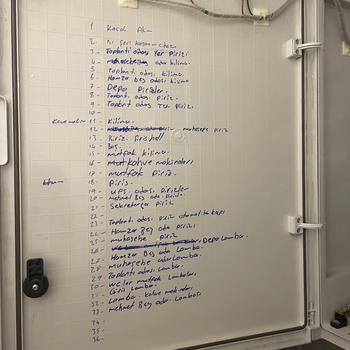 1. Kacak Akım
2.
3. Toplantı odası yer prizi
4. odası klima
5. Toplantı odası klima
6. Hamza Bey odası klima
7. Depo Prizler.
8. Toplantı odası priz.
9. Toplantı odası TV prizi
10.
11. Klima.
12. muhasebe priz
13. Priz
14. Boş.
15. mutfak klima.
16. kahve makinaları
17. mutfak priz.
18. Priz.
19. UPS odası prizler
20. mehmet Bey oda prizler.
21. Sekreterya priz
22.
23. Toplantı odası priz otomatik kapı
24.
25. Hamza Bey oda priz.
26. muhasebe priz
27. Depo Lamba.
28. Hamza Bey oda Lamba.
28. muhasebe oda Lamba.
29. Toplantı odası Lamba.
30. wc ler mutfak Lambaları.
31. Giriş Lamba.
32. Lamba. kahve makinaları
33. mehmet Bey oda Lambası.
34.
35.
36.